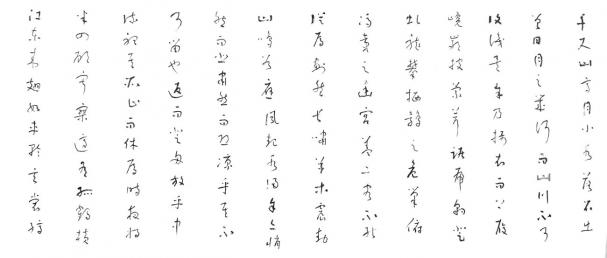 千尺山高月小水落石出
曾日月之幾何而山川不可
復識矣予乃攝衣而上履
巉巖披蒙茸踞虎豹登
虬龍攀栖鶻之危巢俯
馮夷之幽宮蓋二客不能
從焉劃然長嘯草木震動
山鳴谷應風起水涌予亦悄
然而悲肅然而恐凜乎其不
可留也返而登舟放乎中
流聽其所止而休焉時夜將
半四顧寂寥適有孤鶴橫
江東來翅如車輪玄裳縞